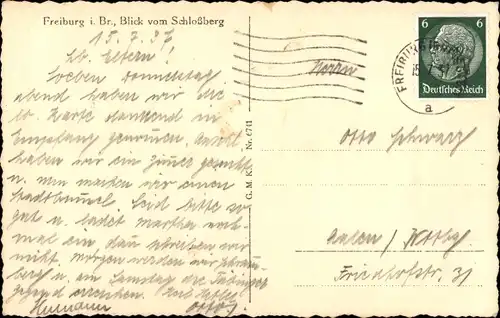 Freiburg i. Br., Blick vom Schloßberg
15.7.37
Lb. Eltern!
Soeben Donnerstag
abend haben wir die
lb. Karte dankend in
Empfang genommen. 
haben wir ein Zimmer gesucht
u. nun machen wir einen
Stadtbummel. Seid bitte so
gut u. ladet Martha noch-
mal ein, dann schreiben wir
nicht. Morgen werden wir
berg u. am Samstag die Tübinger
gegend erreichen.
Hermann Otto
G. M. K. Nr. 6741
Herrn
Otto Schwarz
Aalen/Wttbg
Friedhofstr. 31
FREIBURG
15
a
6 6
Deutsches Reich